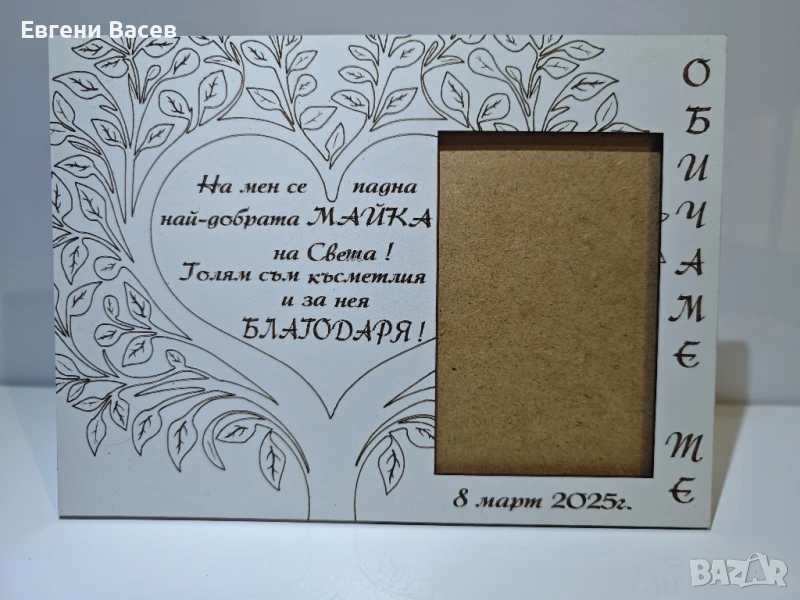 Евгени Васев
На мен се падна
най-добрата МАЙКА
на Света !
Голям съм късметлия
и за нея
БЛАГОДАРЯ!
ОБИЧАМЕ ТЕ
8 март 2025г.
BAZAR